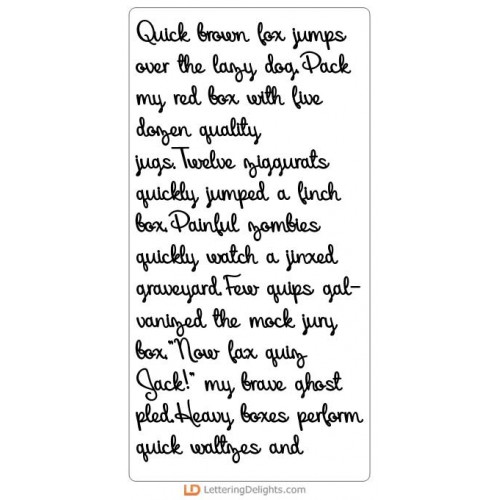 Quick brown fox jumps
over the lazy dog.Pack
my red box with five
dozen quality
jugs.Twelve ziggurats
quickly jumped a finch
box.Painful zombies
quickly watch a jinxed
graveyard.Few quips gal-
vanized the mock jury
box."Now fax quiz
Jack!" my brave ghost
pled.Heavy boxes perform
quick waltzes and
LD LetteringDelights.com